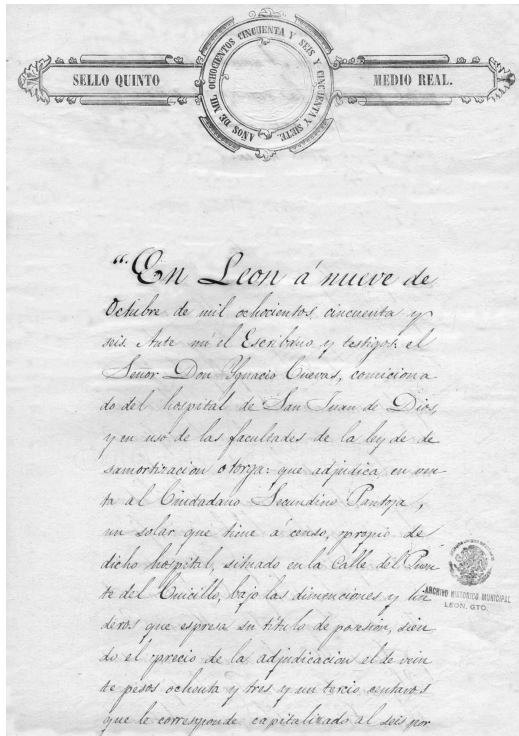 SELLO QUINTO
AÑOS DE MIL OCHOCIENTOS CINCUENTA Y SEIS Y CINCUENTA Y SIETE.
MEDIO REAL.
"En Leon á nueve de
Octubre de mil ochocientos cincuenta y
seis Ante mí el Escribano y testigos el
Señor Don Ygnacio Cuevas, comiciona
do del hospital de San Juan de Dios,
y en uso de las facultades de la ley de de
samortizacion otorga: que adjudica en ven
ta al Ciudadano Secundino Pantoja,
un solar que tiene á censo, propio de
dicho hospital, situado en la Calle del Puen
te del Cuicillo, bajo las dimenciones y lin
deros que espresa su título de posesion, sien
do el precio de la adjudicacion el de vein
te pesos ochenta y tres y un tercio centavos
que le corresponde capitalizado al seis por
ARCHIVO HISTORICO MUNICIPAL
LEON, GTO.